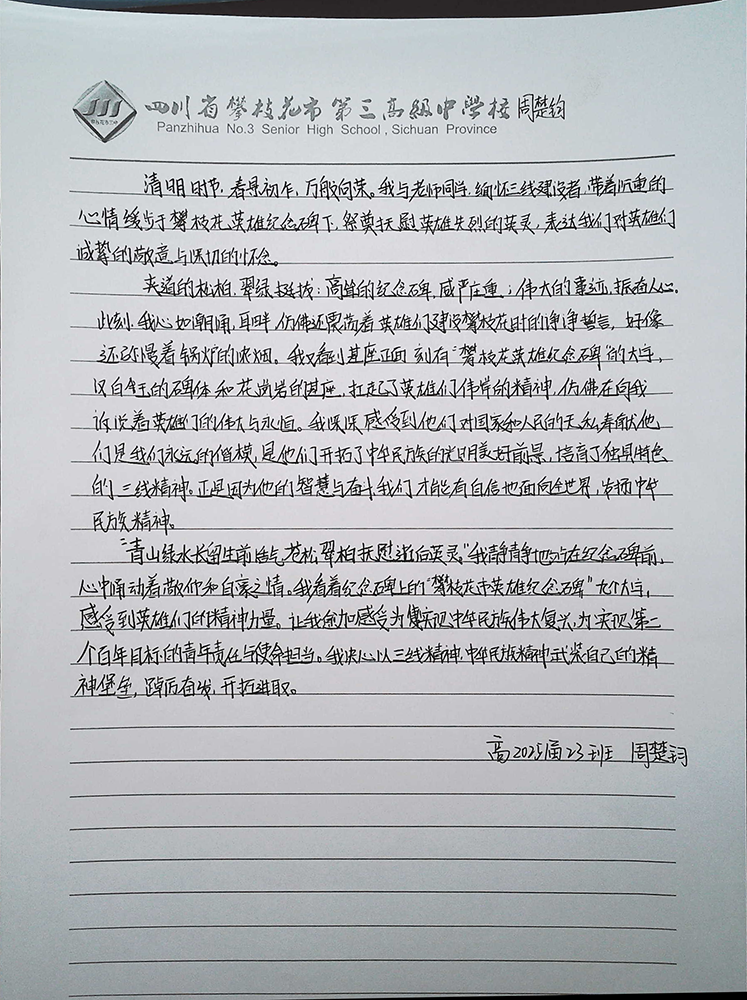 四川省攀枝花市第三高级中学校 周楚钧
Panzhihua No.3 Senior High School , Sichuan Province
清明时节,春景初乍,万般向荣。我与老师同学,缅怀三线建设者,带着沉重的
心情缓步于攀枝花英雄纪念碑下,祭奠抚慰英雄先烈的英灵,表达我们对英雄们
诚挚的敬意与深切的怀念。
夹道的松柏,翠绿挺拔;高耸的纪念碑,威严庄重;伟大的事迹,振奋人心。
此刻,我心如潮涌,耳畔,仿佛还震荡着英雄们建设攀枝花时的铮铮誓言,好像
还弥漫着锅炉的浓烟。我又看到基座正面刻有“攀枝花英雄纪念碑”的大字,
汉白玉的碑体和花岗岩的基座,扛起了英雄们伟岸的精神,仿佛在向我
诉说着英雄们的伟大与永恒。我深深感受到他们对国家和人民的无私奉献,他
们是我们永远的楷模,是他们开拓了中华民族的光明美好前景,培育了独具特色
的三线精神。正是因为他的智慧与奋斗,我们才能有自信地面向全世界,发扬中华
民族精神。
“青山绿水长留生前浩气,苍松翠柏抚慰逝后英灵。”我静静地站在纪念碑前,
心中涌动着敬仰和自豪之情。我看着纪念碑上的“攀枝花市英雄纪念碑”九个大字,
感受到英雄们的精神力量。让我愈加感受为实现中华民族伟大复兴,为实现第二
个百年目标的青年责任与使命担当。我决心以三线精神,中华民族精神武装自己的精
神堡垒,踔厉奋发,开拓进取。
高2025届23班 周楚钧